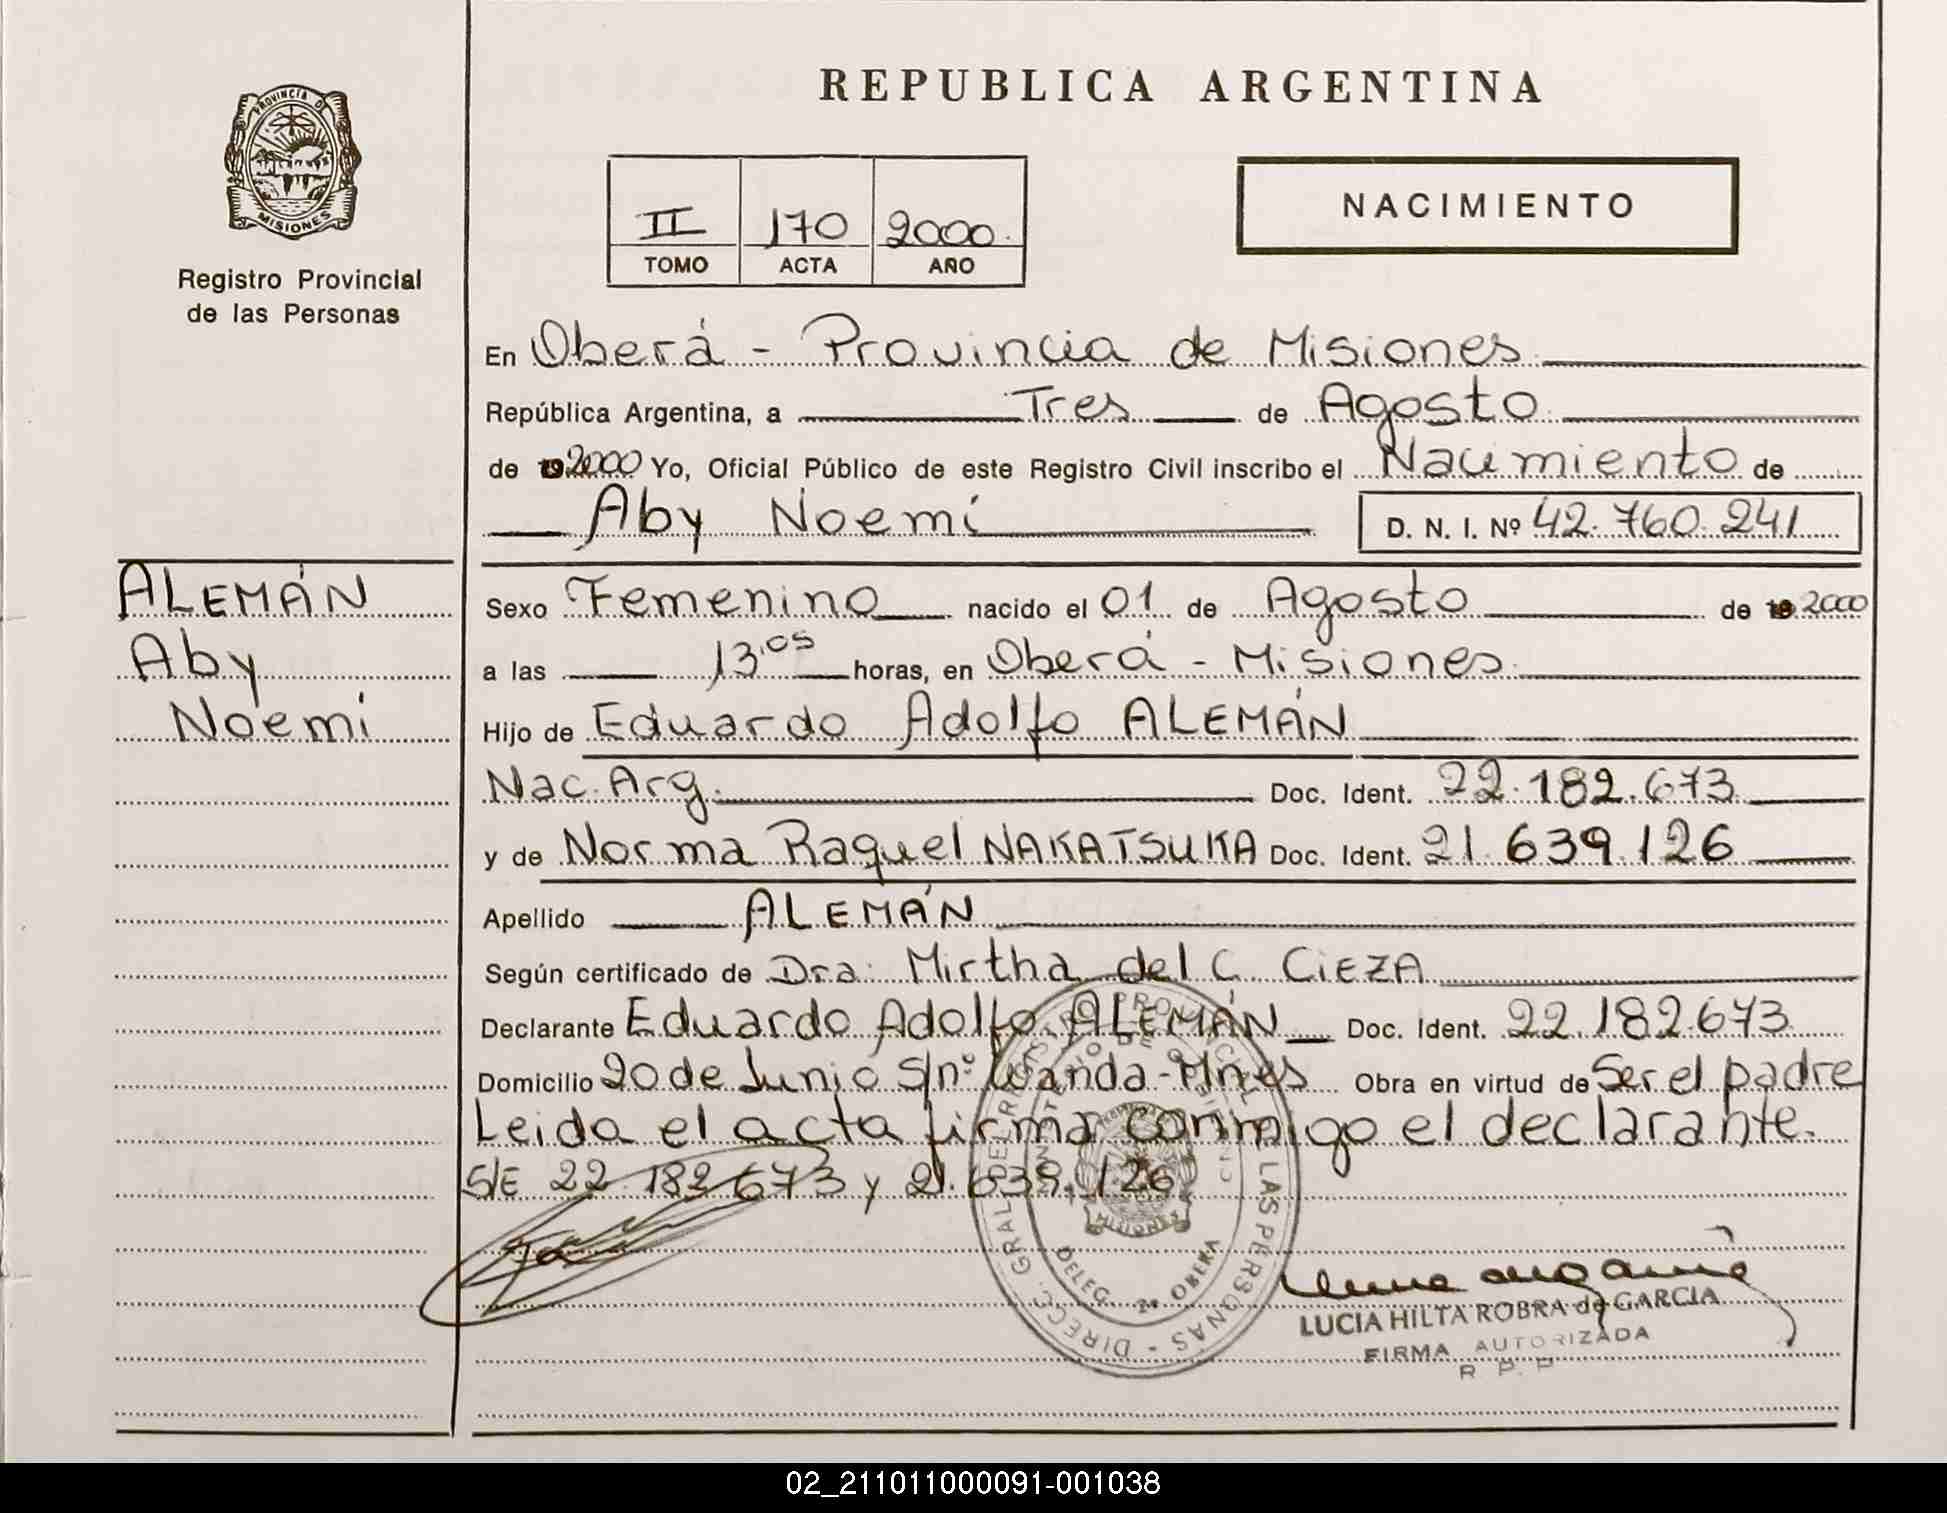 PROVINCIA DE
MISIONES
Registro Provincial
de las Personas
ALEMÁN
Aby
Noemí
REPUBLICA ARGENTINA
II 170 2000.
TOMO ACTA AÑO
NACIMIENTO
En Oberá - Provincia de Misiones.
República Argentina, a Tres de Agosto
de 19 2000 Yo, Oficial Público de este Registro Civil inscribo el Nacimiento de
Aby Noemí D. N. I. Nº 42.760.241
Sexo Femenino nacido el 01 de Agosto de 2000
a las 13.05 horas, en Oberá - Misiones.
Hijo de Eduardo Adolfo ALEMÁN
Nac. Arg. Doc. Ident. 22.182.673
y de Norma Raquel NAKATSUKA Doc. Ident. 21.639.126
Apellido ALEMÁN
Según certificado de Dra: Mirtha del C. CIEZA
Declarante Eduardo Adolfo ALEMÁN Doc. Ident. 22.182.673
Domicilio 20 de Junio S/nº Wanda-Mnes Obra en virtud de Ser el padre
Leida el acta firma conmigo el declarante.
S/E 22.182.673 y 21.639.126.
DIRECC. GRAL. DEL REGISTRO PROVINCIAL DE LAS PERSONAS
DELEG. 2ª OBERA
MISIONES
LUCIA HILTA ROBRA de GARCIA
FIRMA AUTORIZADA
R. P. P.
02_211011000091-001038